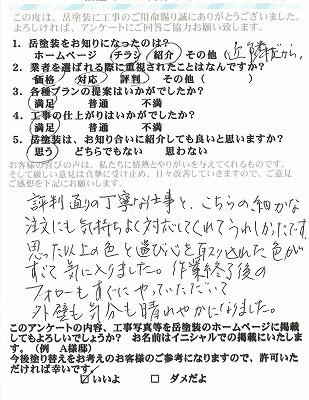 この度は、岳塗装に工事のご用命賜り誠にありがとうございました。
よろしければ、アンケートにご回答ご協力お願い致します。
1. 岳塗装をお知りになったのは?
ホームページ チラシ 紹介 その他 (近隣だから。
2. 業者を選ばれる際に重視されたことはなんですか?
価格 対応 評判 その他 ( )
3. 各種プランの提案はいかがでしたか?
満足 普通 不満
4. 工事の仕上がりはいかがでしたか?
満足 普通 不満
5. 岳塗装は、お知り合いに紹介しても良いと思いますか?
思う どちらでもない 思わない
お客様の喜びの声は、私たちに情熱とやりがいを与えてくれるものです。
そして厳しい意見は真摯に受け止め、日々改善していきますので、ご意見
ご感想を下記にお願いします。
評判通りの丁寧なお仕事と、こちらの細かな
注文にも気持ちよく対応してくれてうれしかったです。
思った以上の色と遊び心を取り入れた色が
すごく気に入りました。作業終了後の
フォローもすぐにやっていただいて
外壁も気分も晴れやかになりました。
このアンケートの内容、工事写真等を岳塗装のホームページに掲載
してもよろしいでしょうか? お名前はイニシャルでの掲載にいたしま
す。(例 A様邸)
今後塗り替えをお考えのお客様のご参考になりますので、許可いた
だければ幸いです。
☑ いいよ □ ダメだよ